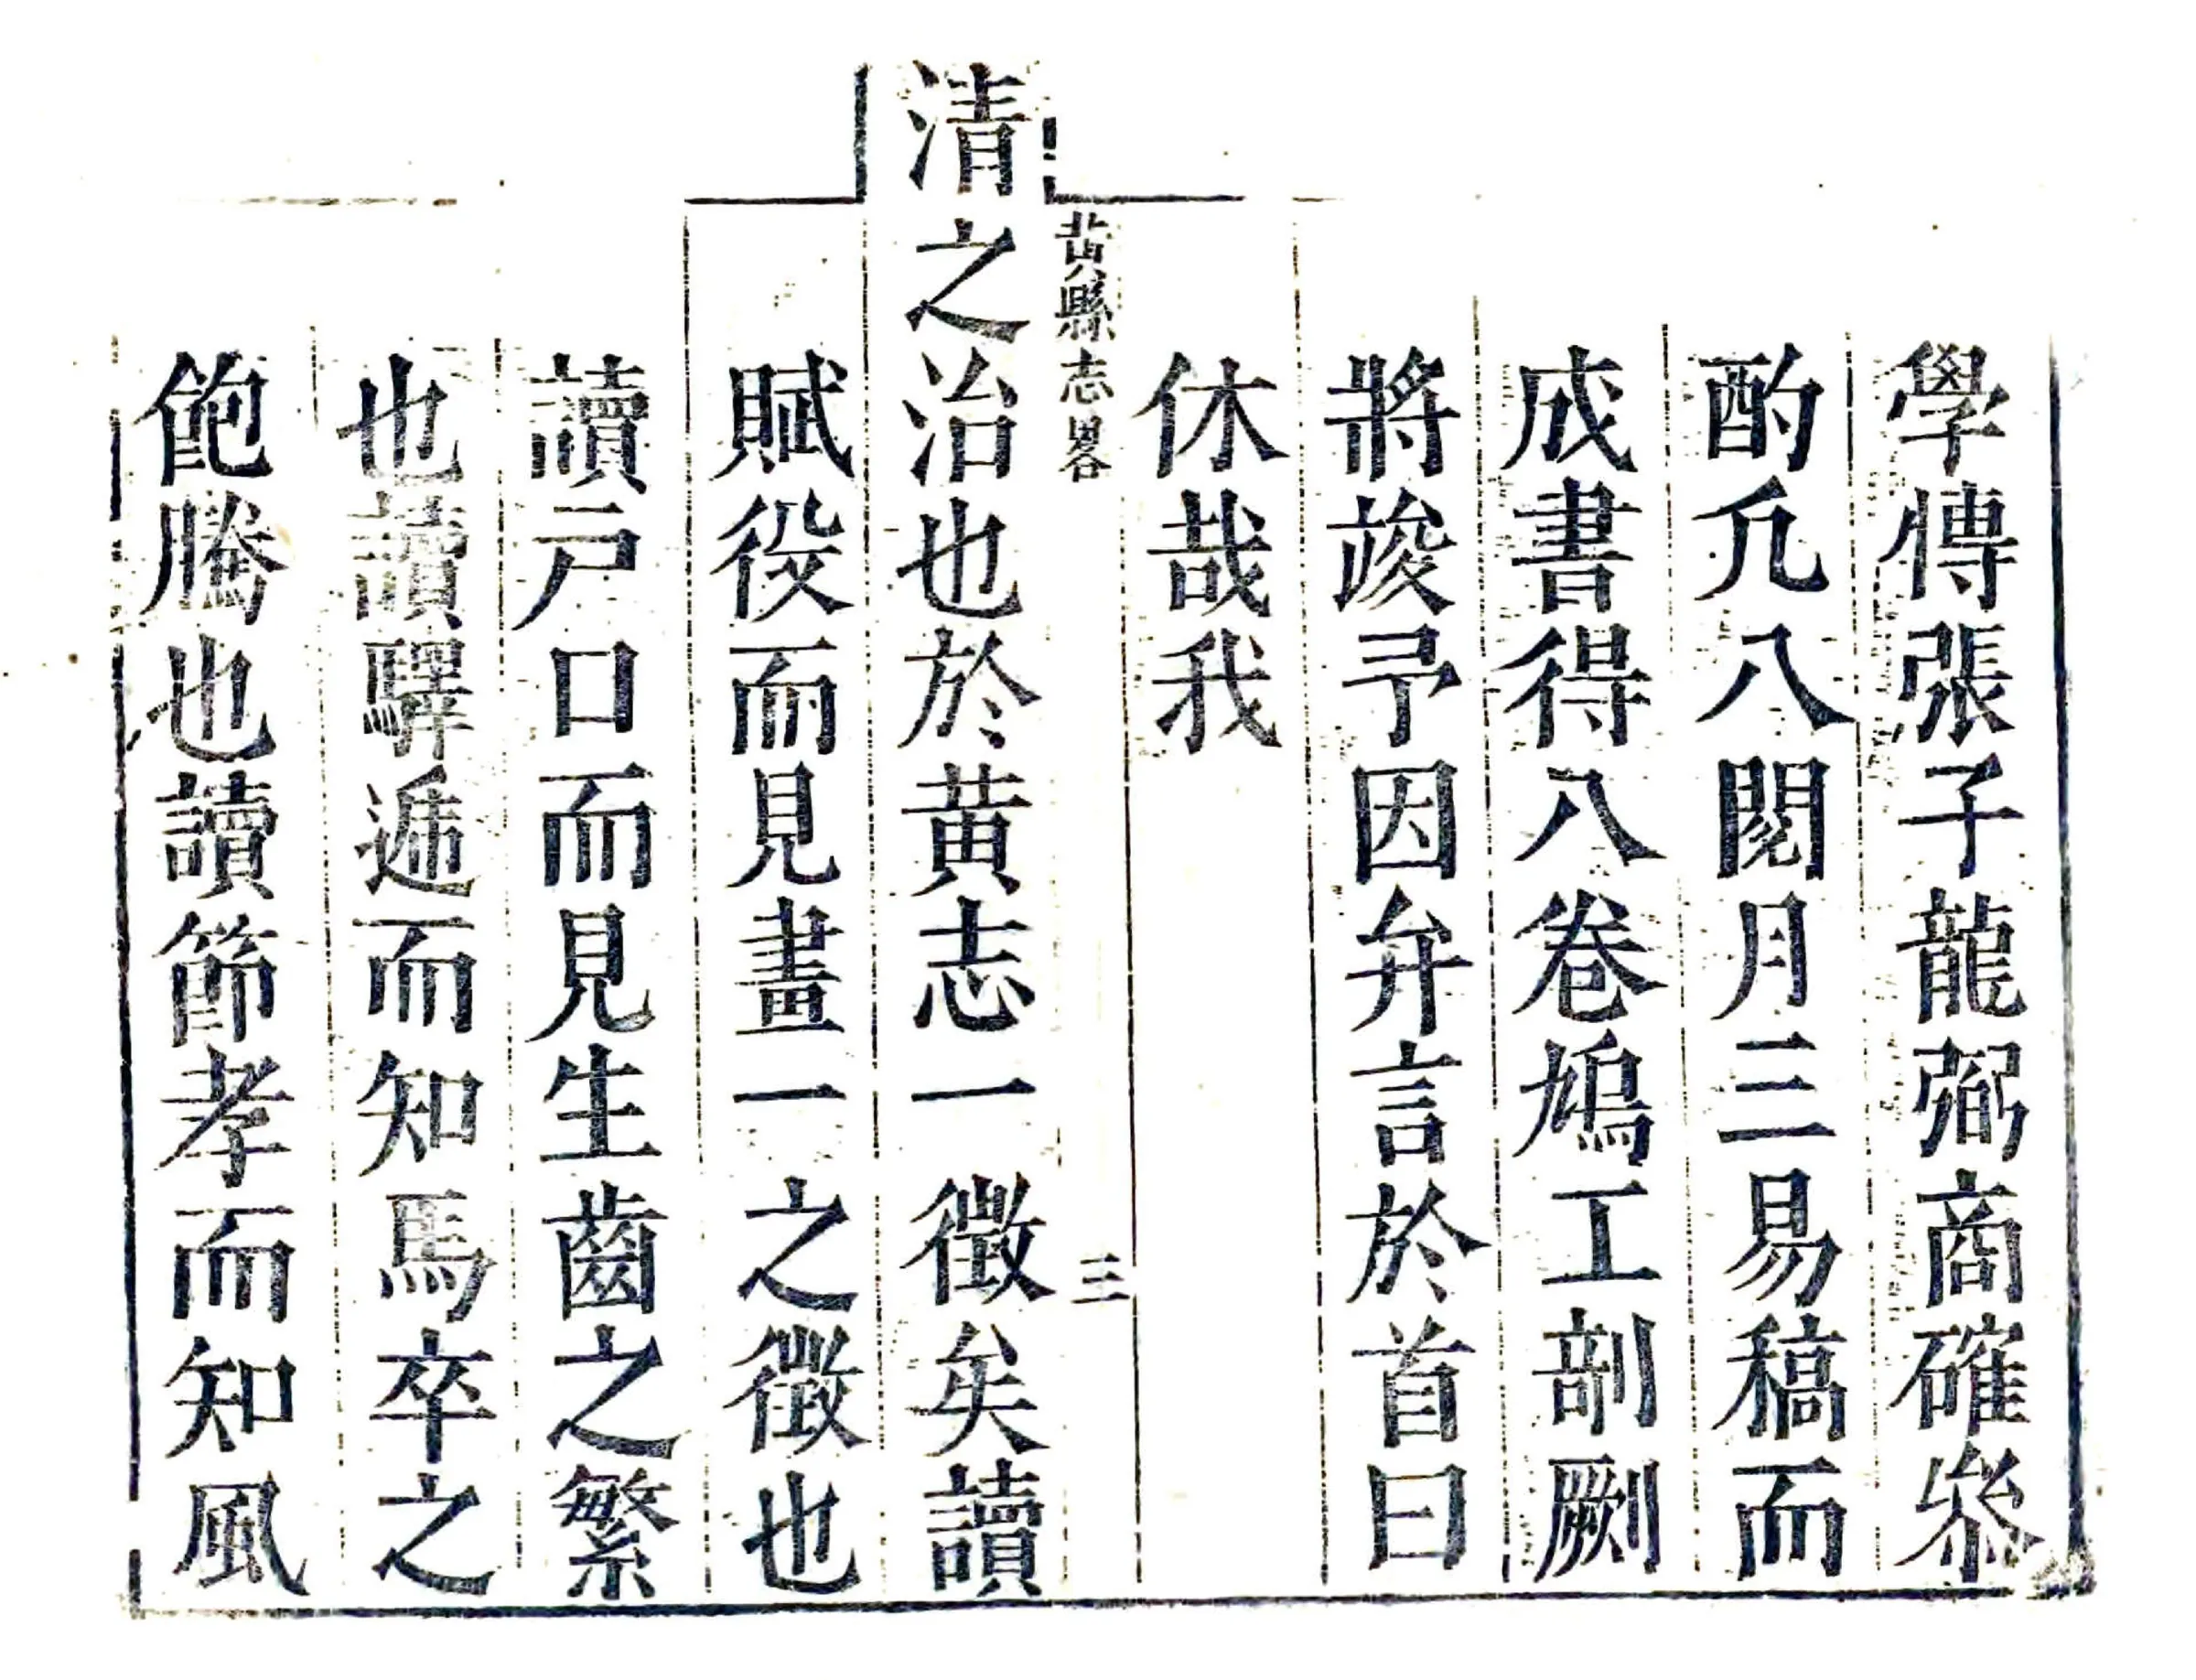 學傅張子龍弼商確叅
酌凢八閱月三易稿而
成書得八卷鳩工剖劂
將竣予因弁言於首曰
休哉我
黃縣志畧
三
清之治也於黃志一徵矣讀
賦役而見畫一之徵也
讀戶口而見生齒之繁
也讀驛遞而知馬卒之
飽騰也讀節孝而知風